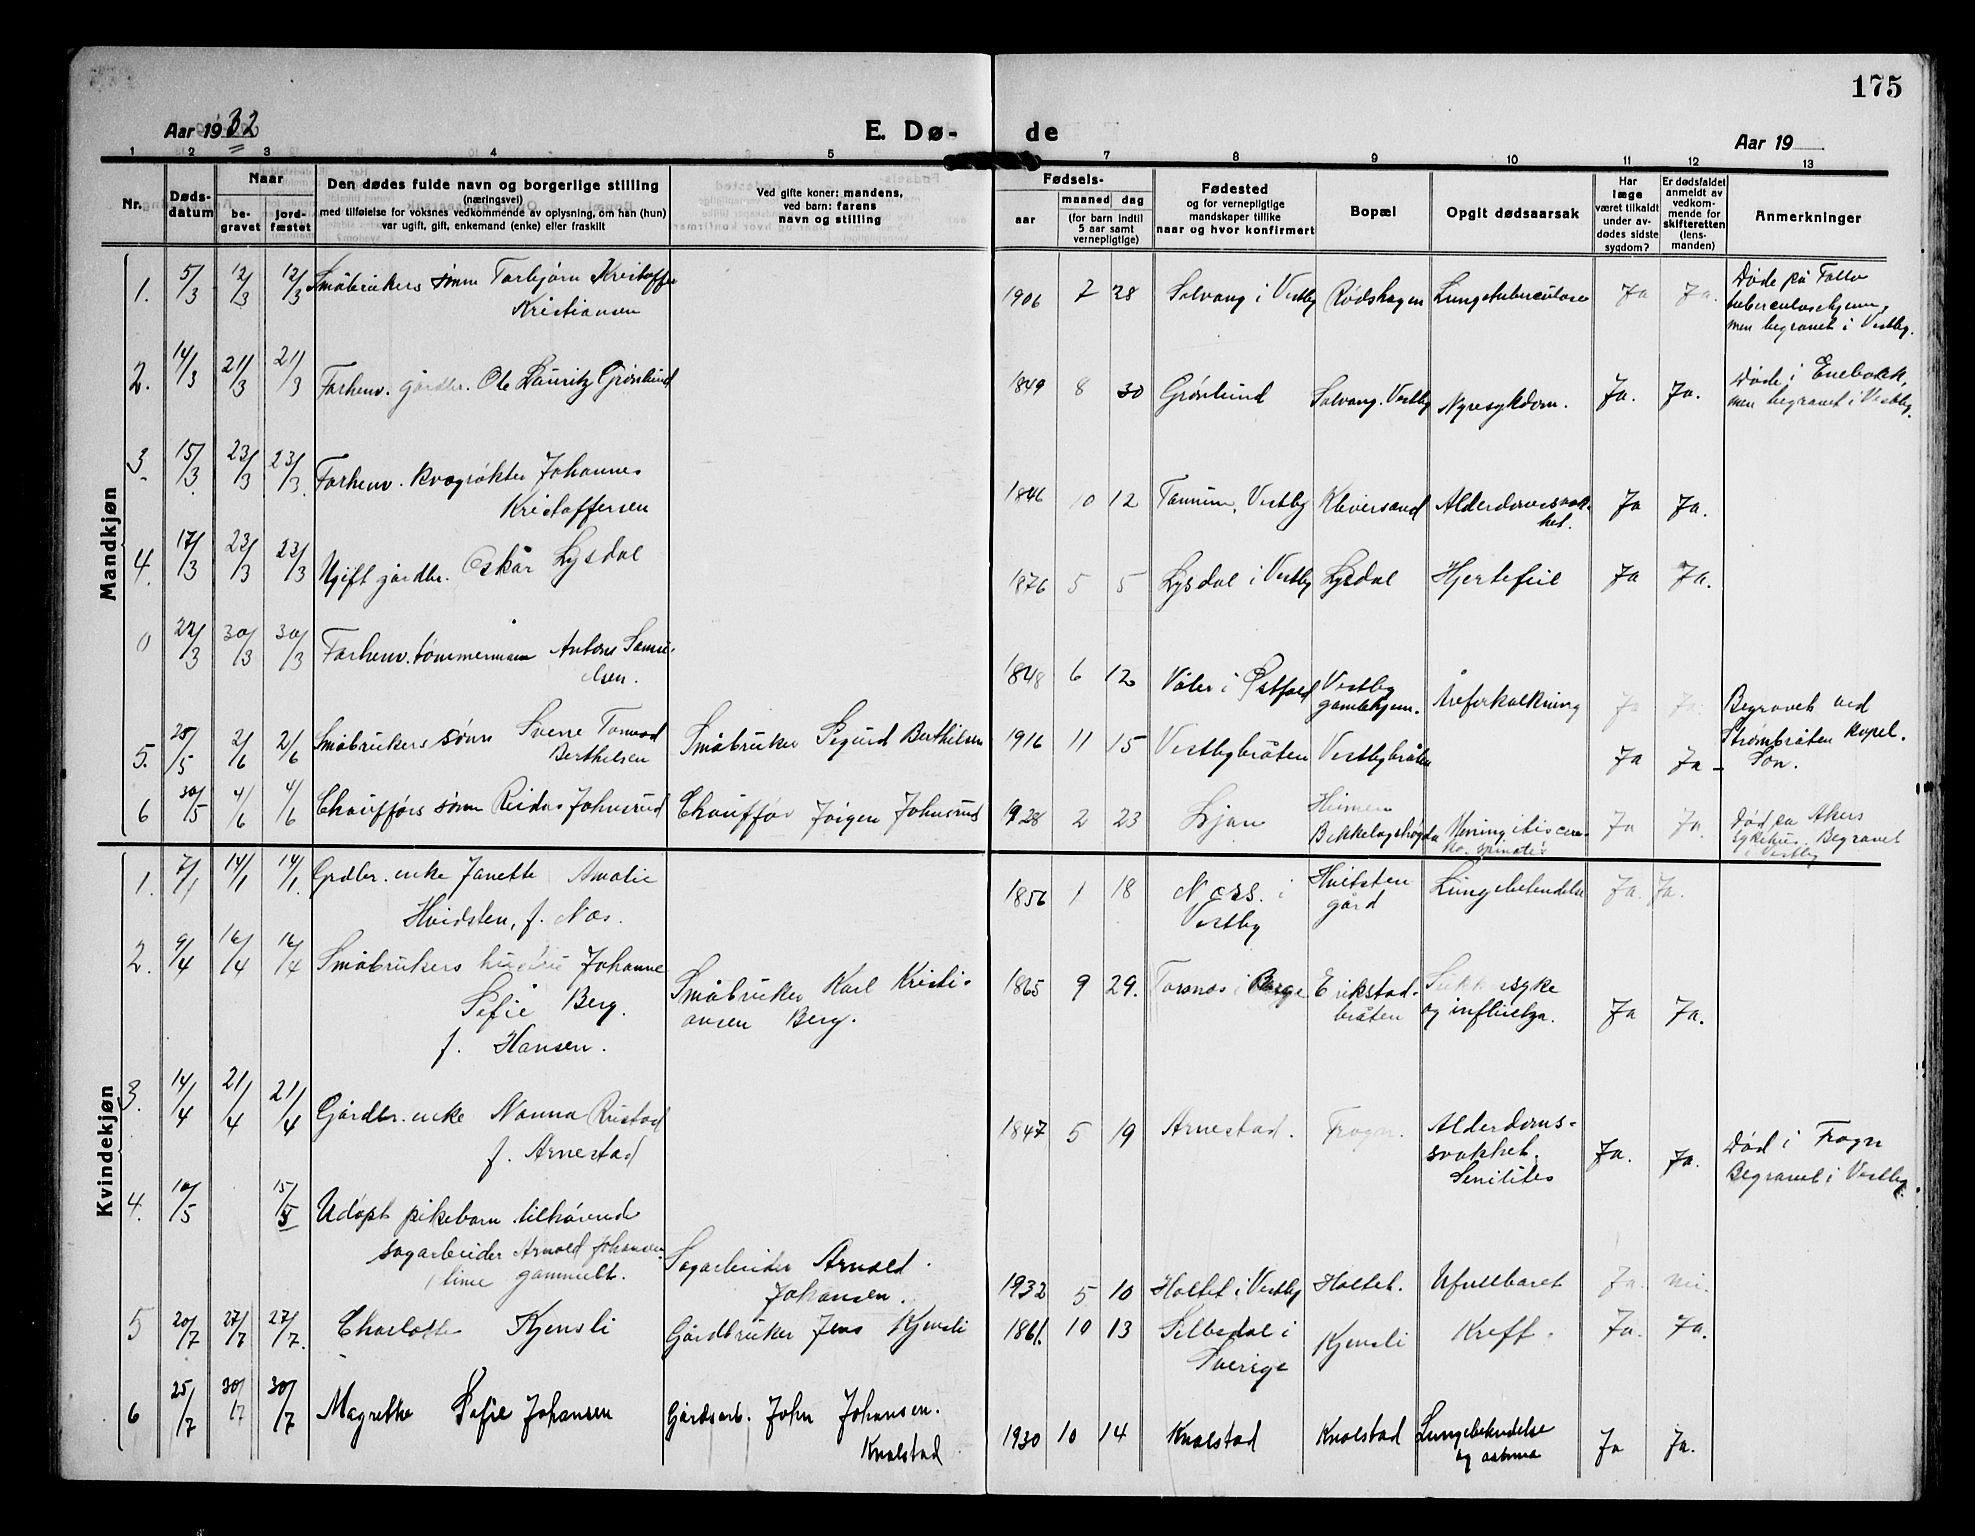 175
Aar 1932
E. Dø-
de
Aar 19
1 2 3 4 5 7 8 9 10 11 12 13
Nr.
Døds-
datum
Naar
be-
gravet
jord-
fæstet
Den dødes fulde navn og borgerlige stilling
(næringsvei)
med tilføielse for voksnes vedkommende av oplysning, om han (hun)
var ugift, gift, enkemand (enke) eller fraskilt
Ved gifte koner: mandens,
ved barn: farens
navn og stilling
Fødsels-
aar
maaned dag
(for barn indtil
5 aar samt
vernepligtige)
Fødested
og for vernepligtige
mandskaper tillike
naar og hvor konfirmert
Bopæl
Opgit dødsaarsak
Har
læge
været tilkaldt
under av-
dødes sidste
sygdom?
Er dødsfaldet
anmeldt av
vedkom-
mende for
skifteretten
(lens-
manden)
Anmerkninger
Mandkjøn
1. 5/3 12/3 12/3 Småbrukers sønn Torbjørn Kristoffer
Kristiansen
1906 7 28 Solvang i Vestby Rødshagen Lungetuberculose Ja Ja.
Døde på Follo
tuberculosehjem,
men begravet i Vestby.
2. 14/3 21/3 21/3 Forhenv. gårdbr. Ole Lauritz Grønlund
1849 8 30 Grønlund Solvang. Vestby Nyresykdom. Ja. Ja.
Døde i Enebakk,
men begravet i Vestby.
3. 15/3 23/3 23/3. Forhenv. kvegrøkter Johannes
Kristoffersen
1846 10 12 Taunum, Vestby Kleversand Alderdomssvak-
het. Ja Ja.
4. 17/3 23/3 23/3 Ugift gårdbr. Oskar Lysdal
1876 5 5 Lysdal i Vestby Lysdal Hjertefeil Ja Ja.
0 22/3 30/3 30/3 Forhenv. tømmermann Anton Samu-
elsen.
1848 6 12 Våler i Østfold Vestby
gamlehjem. Åreforkalkning Ja Ja.
Begravet ved
Strømbråten kapel.
Son.
5. 25/5 2/6 2/6 Småbrukers sønn Sverre Tormod
Berthelsen Småbruker Sigurd Berthelsen
1916 11 15 Vestbybråten Vestbybråten Ja Ja
6 30/5 4/6 4/6 Chaufførs sønn Reidar Johnsrud Chauffør Jørgen Johnsrud
1928 2 23 Ljan Heimen
Bekkelagshøgda Meningitis cere-
bro spinalis Ja Ja.
Død på Akers
sykehus. Begravet
i Vestby
Kvindekjøn
1. 7/1 14/1 14/1. Grdbr. enke Janette Amalie
Hvidsten, f. Næs.
1856 1 18 Næss. i
Vestby Hvitsten
gård Lungebetendelse Ja. Ja.
2. 9/4 16/4 16/4 Småbrukers hustru Johanne
Sofie Berg.
f. Hansen.
Småbruker Karl Kristi-
ansen Berg.
1865 9 29. Torsnes i Borge Erikstad-
bråten Sukkersyke
og influenza. Ja Ja.
3. 14/4 21/4 21/4 Gårdbr. enke Nanna Ristad
f. Arnestad
1847 5 19 Arnestad. Frogn. Alderdoms-
svakhet.
Senilites Ja. Ja.
Død i Frogn
Begravet i Vestby.
4. 10/5 15/5 Udøpt pikebarn tilhørende
sagarbeider Arnold Johansen
1 time gammelt.
Sagarbeider Arnold
Johansen.
1932 5 10 Holtet i Vestby Holtet. Ufullbåret Ja. nei.
5 20/7 27/7 27/7. Charlotte Kjensli Gårdbruker Jens Kjensli
1861. 10 13 Silbodal i
Sverige Kjensli Kreft. Ja. Ja.
6 25/7 30/7 30/7 Magrethe Sofie Johansen Gårdsarb. John Johansen.
Knalstad
1930 10 14 Knalstad Knalstad Lungebetendelse
og astma Ja Ja.